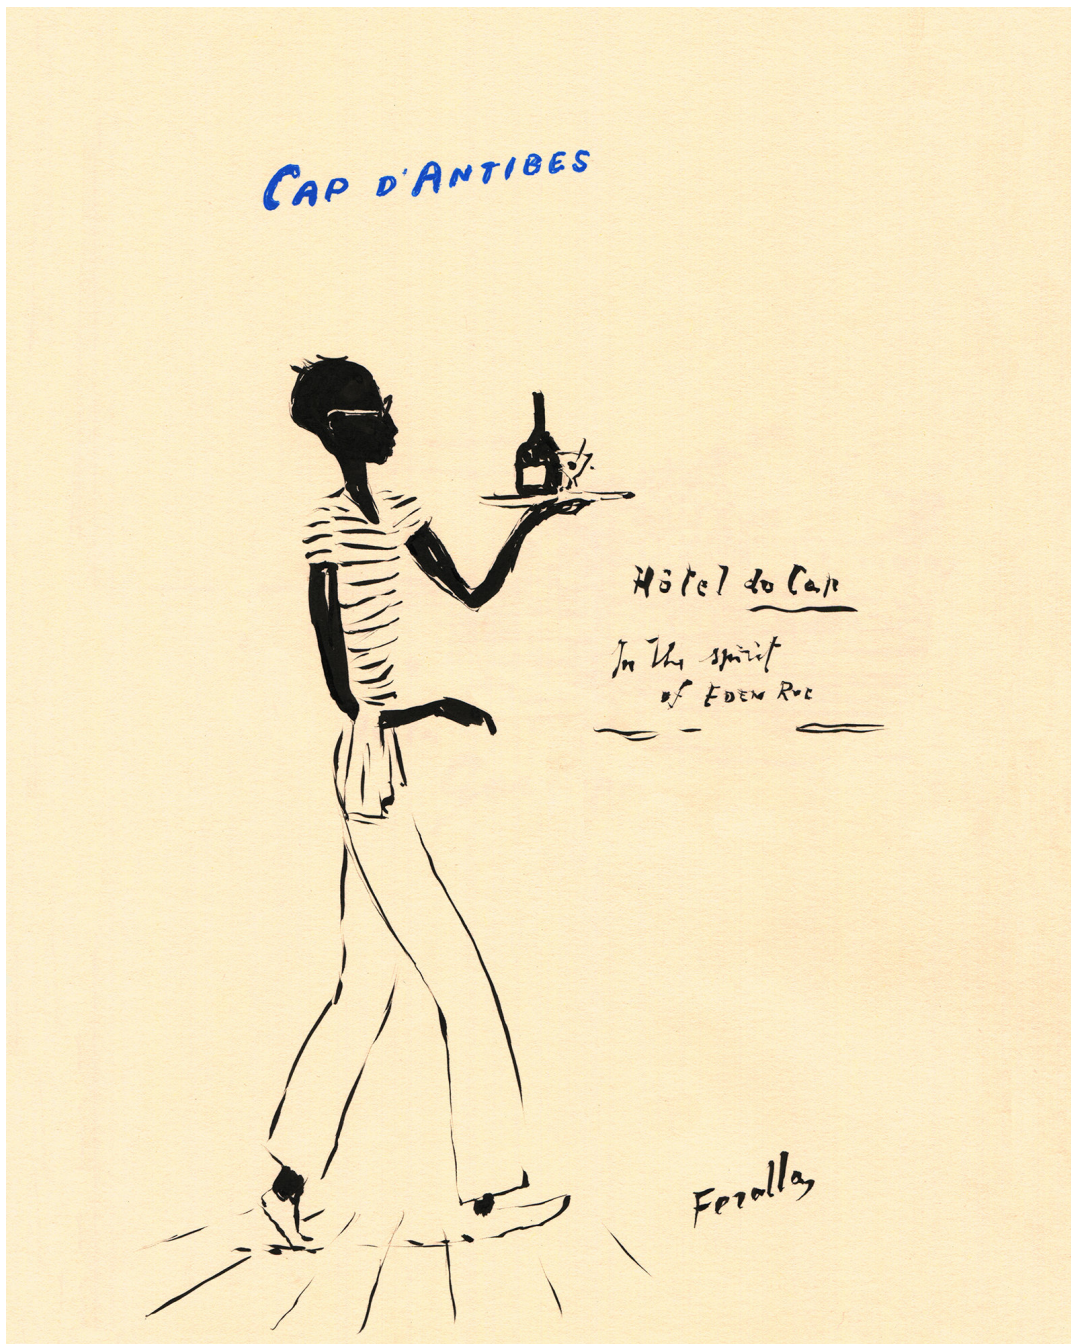 CAP D'ANTIBES
Hôtel du Cap
In the spirit
of EDEN Roc